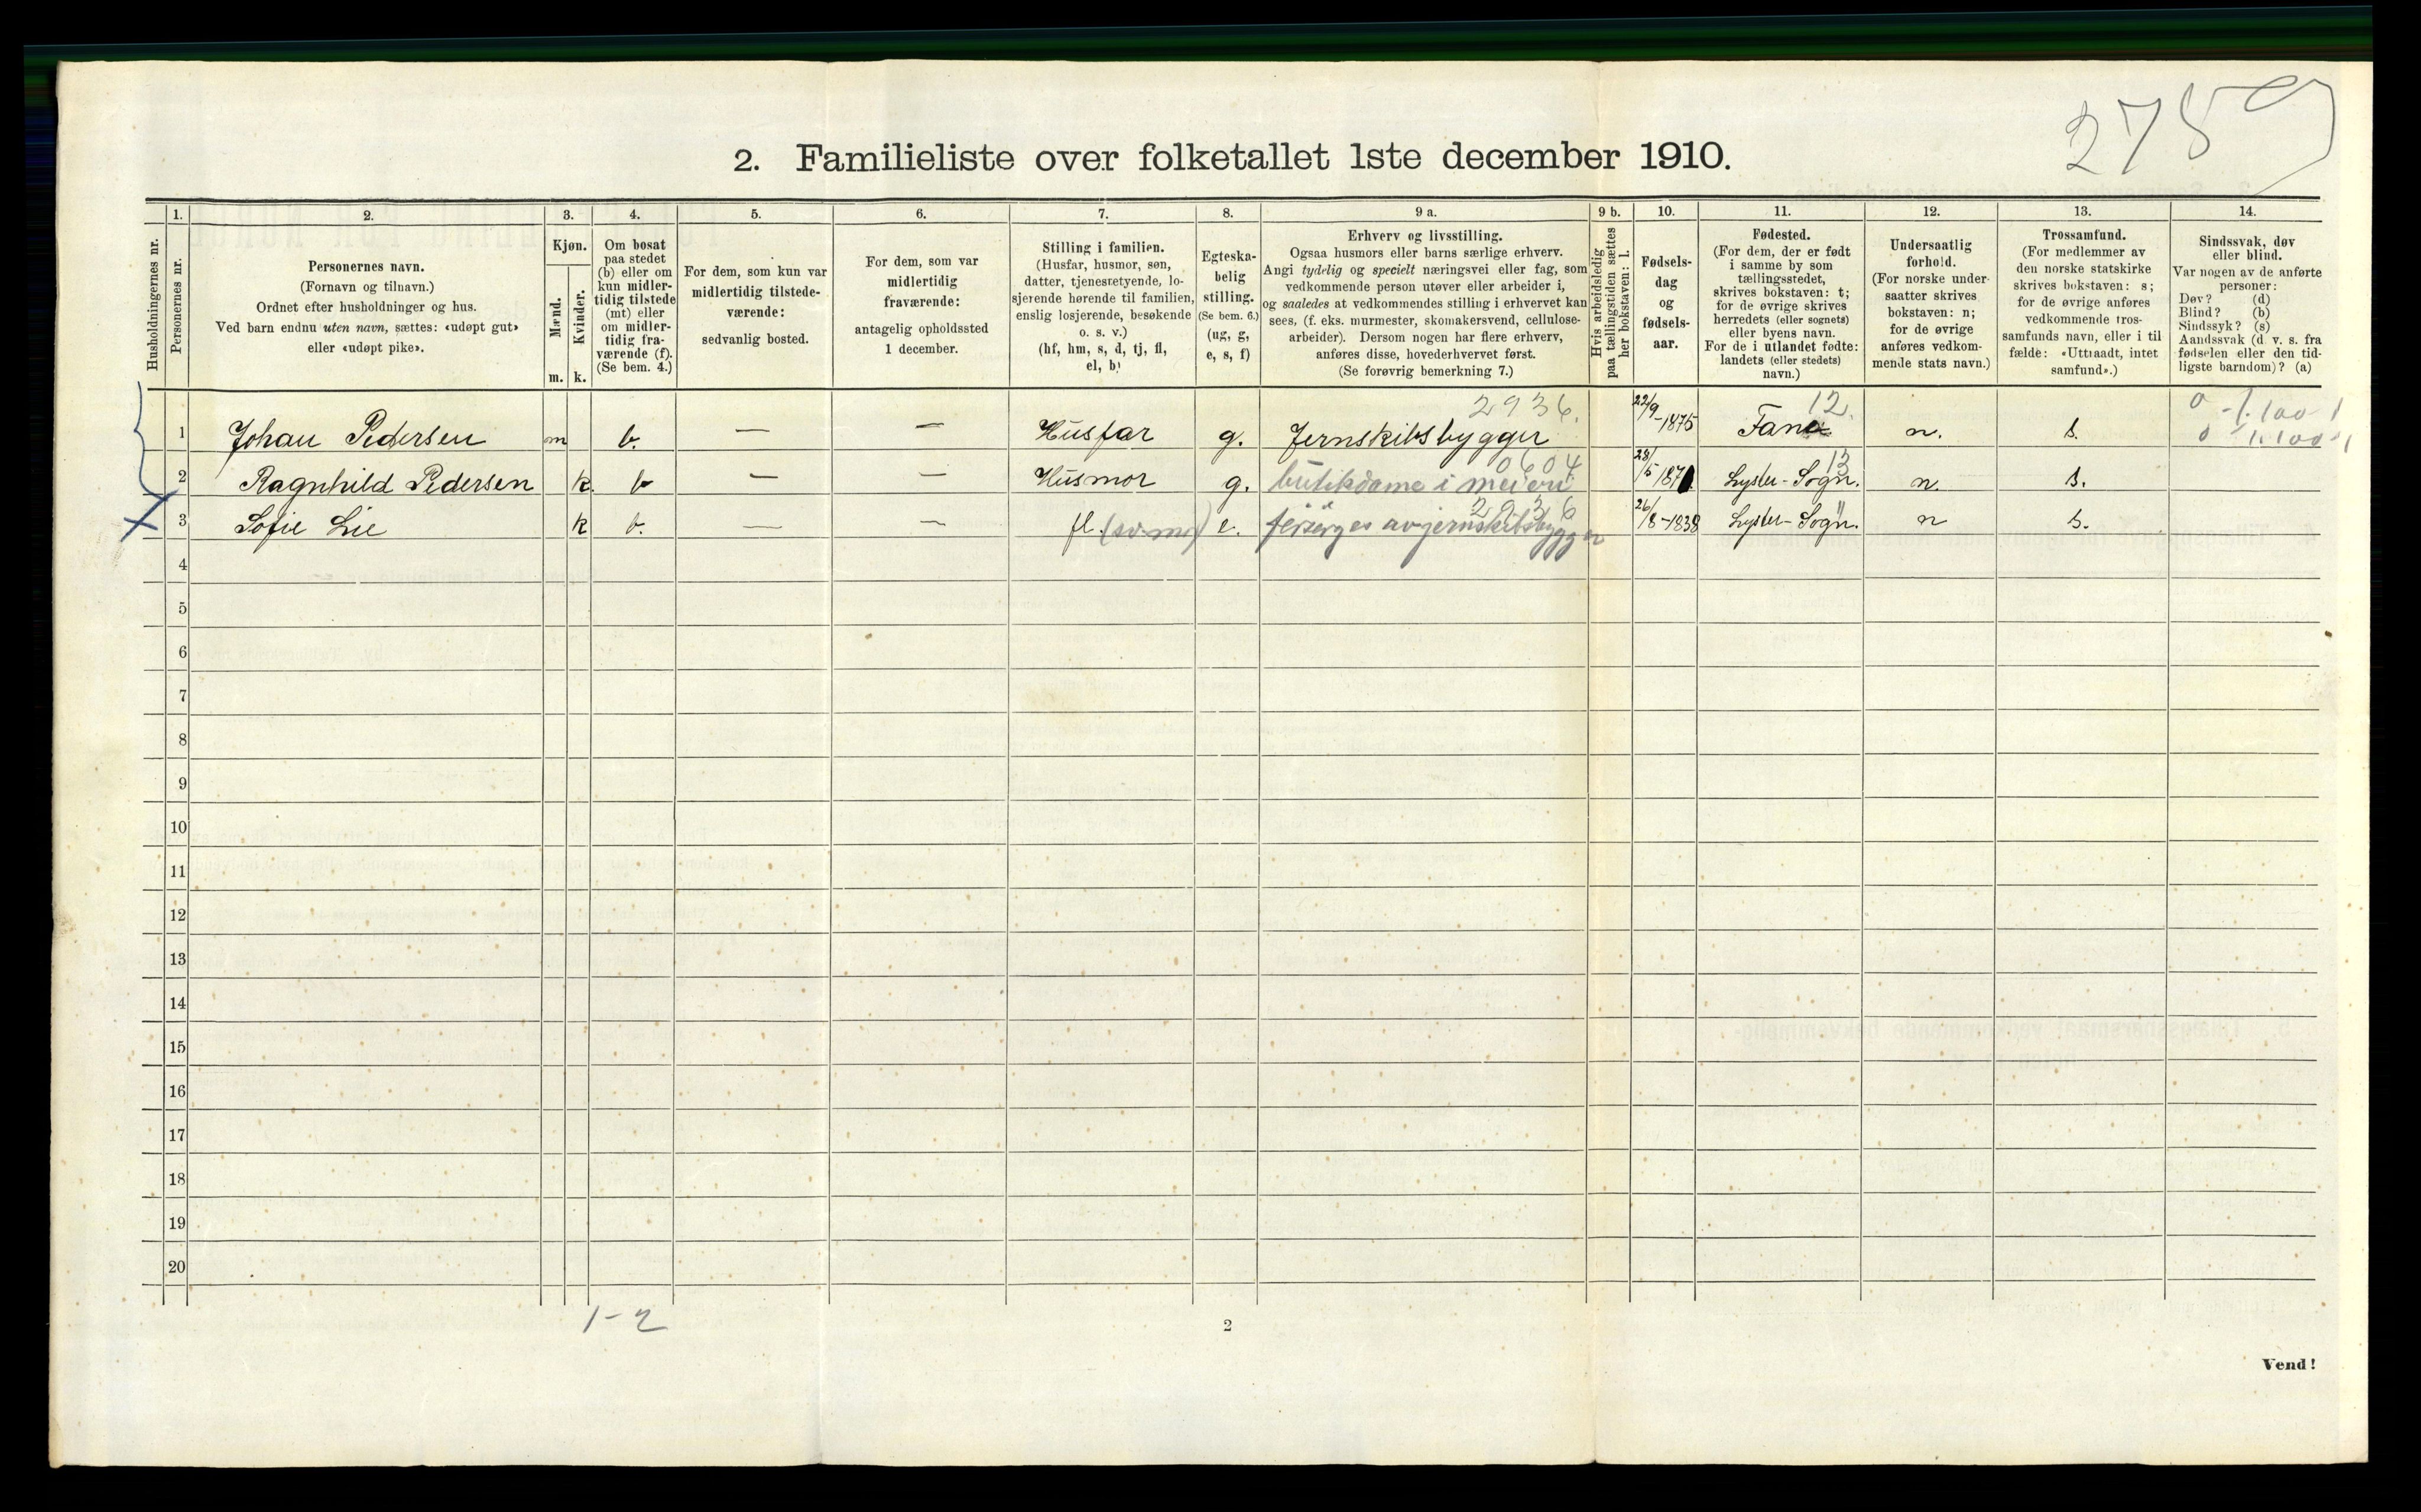 2759
2. Familieliste over folketallet 1ste december 1910.
Husholdningernes nr.
1.
Personernes nr.
2.
Personernes navn.
(Fornavn og tilnavn.)
Ordnet efter husholdninger og hus.
Ved barn endnu uten navn, sættes: «udøpt gut»
eller «udøpt pike».
3.
Kjøn.
Mænd.
Kvinder.
m. k.
4.
Om bosat
paa stedet
(b) eller om
kun midler-
tidig tilstede
(mt) eller
om midler-
tidig fra-
værende (f).
(Se bem. 4.)
5.
For dem, som kun var
midlertidig tilstede-
værende:
sedvanlig bosted.
6.
For dem, som var
midlertidig
fraværende:
antagelig opholdssted
1 december.
7.
Stilling i familien.
(Husfar, husmor, søn,
datter, tjenestetyende, lo-
sjerende hørende til familien,
enslig losjerende, besøkende
o. s. v.)
(hf, hm, s, d, tj, fl,
el, b)
8.
Egteska-
belig
stilling.
(Se bem. 6.)
(ug, g,
e, s, f)
9 a.
Erhverv og livsstilling.
Ogsaa husmors eller barns særlige erhverv.
Angi tydelig og specielt næringsvei eller fag, som
vedkommende person utøver eller arbeider i,
og saaledes at vedkommendes stilling i erhvervet kan
sees, (f. eks. murmester, skomakersvend, cellulose-
arbeider). Dersom nogen har flere erhverv,
anføres disse, hovederhvervet først.
(Se forøvrig bemerkning 7.)
9 b.
Hvis arbeidsledig
paa tællingstiden sættes
her bokstaven: l.
10.
Fødsels-
dag
og
fødsels-
aar.
11.
Fødested.
(For dem, der er født
i samme by som
tællingsstedet,
skrives bokstaven: t;
for de øvrige skrives
herredets (eller sognets)
eller byens navn.
For de i utlandet fødte:
landets (eller stedets)
navn.)
12.
Undersaatlig
forhold.
(For norske under-
saatter skrives
bokstaven: n;
for de øvrige
anføres vedkom-
mende stats navn.)
13.
Trossamfund.
(For medlemmer av
den norske statskirke
skrives bokstaven: s;
for de øvrige anføres
vedkommende tros-
samfunds navn, eller i til
fælde: «Uttraadt, intet
samfund».)
14.
Sindssvak, døv
eller blind.
Var nogen av de anførte
personer:
Døv? (d)
Blind? (b)
Sindssyk? (s)
Aandssvak (d. v. s. fra
fødselen eller den tid-
ligste barndom)? (a)
2936. 12.
1 Johan Pedersen m b. — — Husfar g. Jernskibsbygger 22/9-1875 Fana n. s.
0604 13
2 Ragnhild Pedersen k. b — — Husmor g. butikdame i meieri 28/5 1870 Lyster-Sogn. n. s.
2936 "
3 Sofie Lie k b. — — fl. (sv.mor) e. forsørges av jernskibsbygger 26/8-1838 Lyster-Sogn. n s.
4
5
6
7
8
9
10
11
12
13
14
15
16
17
18
19
20
1-2
2
Vend!